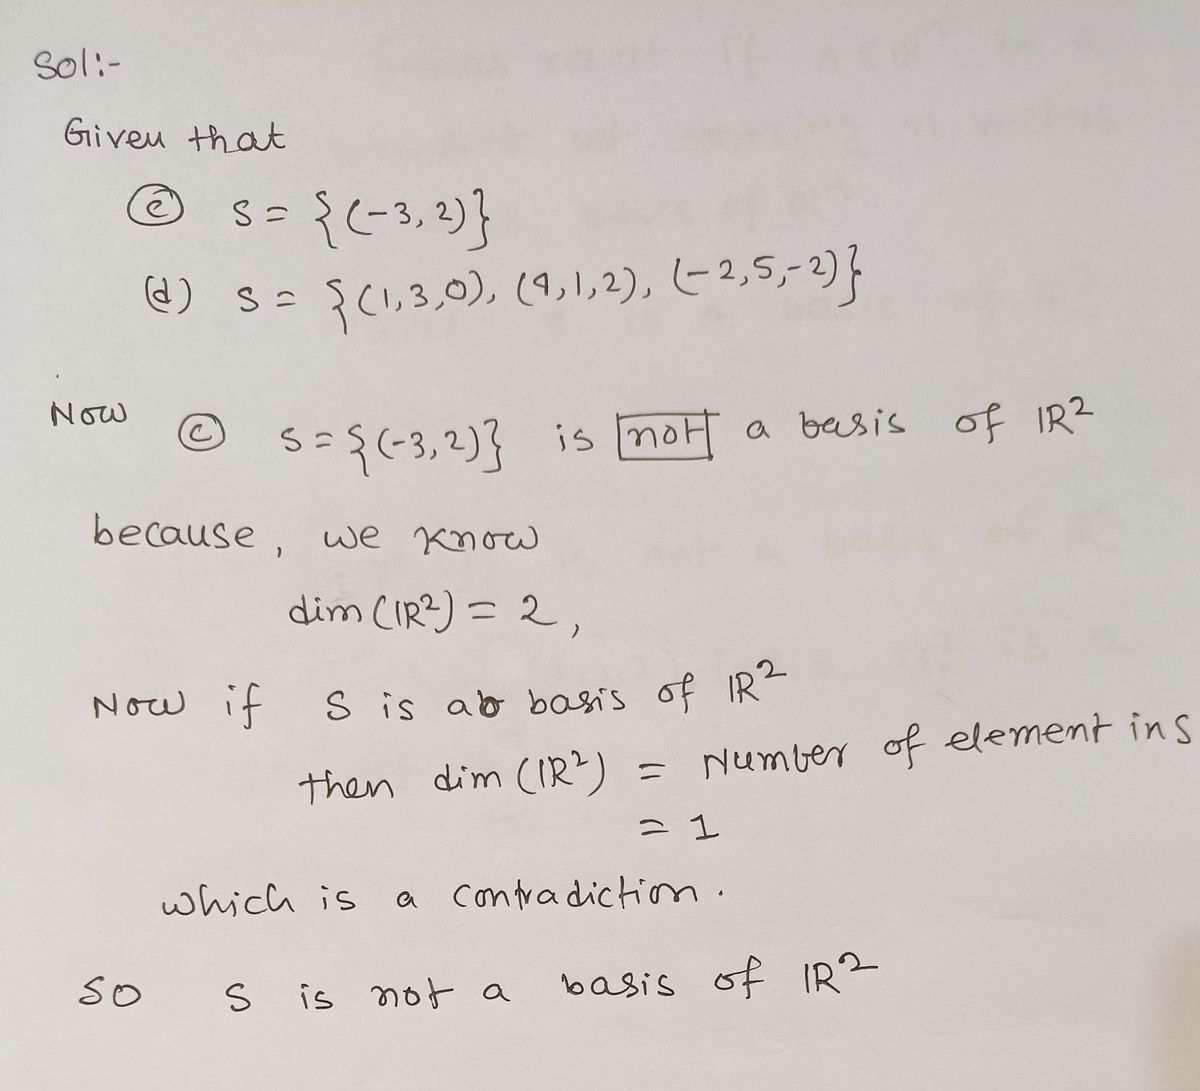 Sol:-
Given that
(c) S = {(-3, 2)}
(d) S = {(1,3,0), (4,1,2), (-2,5,-2)}
Now (c) S = {(-3,2)} is not a basis of ℝ²
because, we know
dim (ℝ²) = 2,
Now if S is a basis of ℝ²
then dim (ℝ²) = Number of element in S
= 1
which is a contradiction.
So S is not a basis of ℝ²